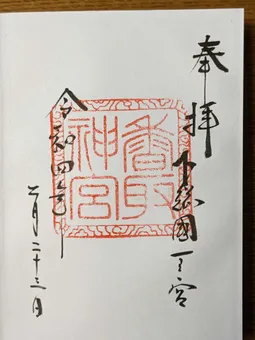 奉拝
下総國一之宮
香取神宮
令和四年
一月二十三日